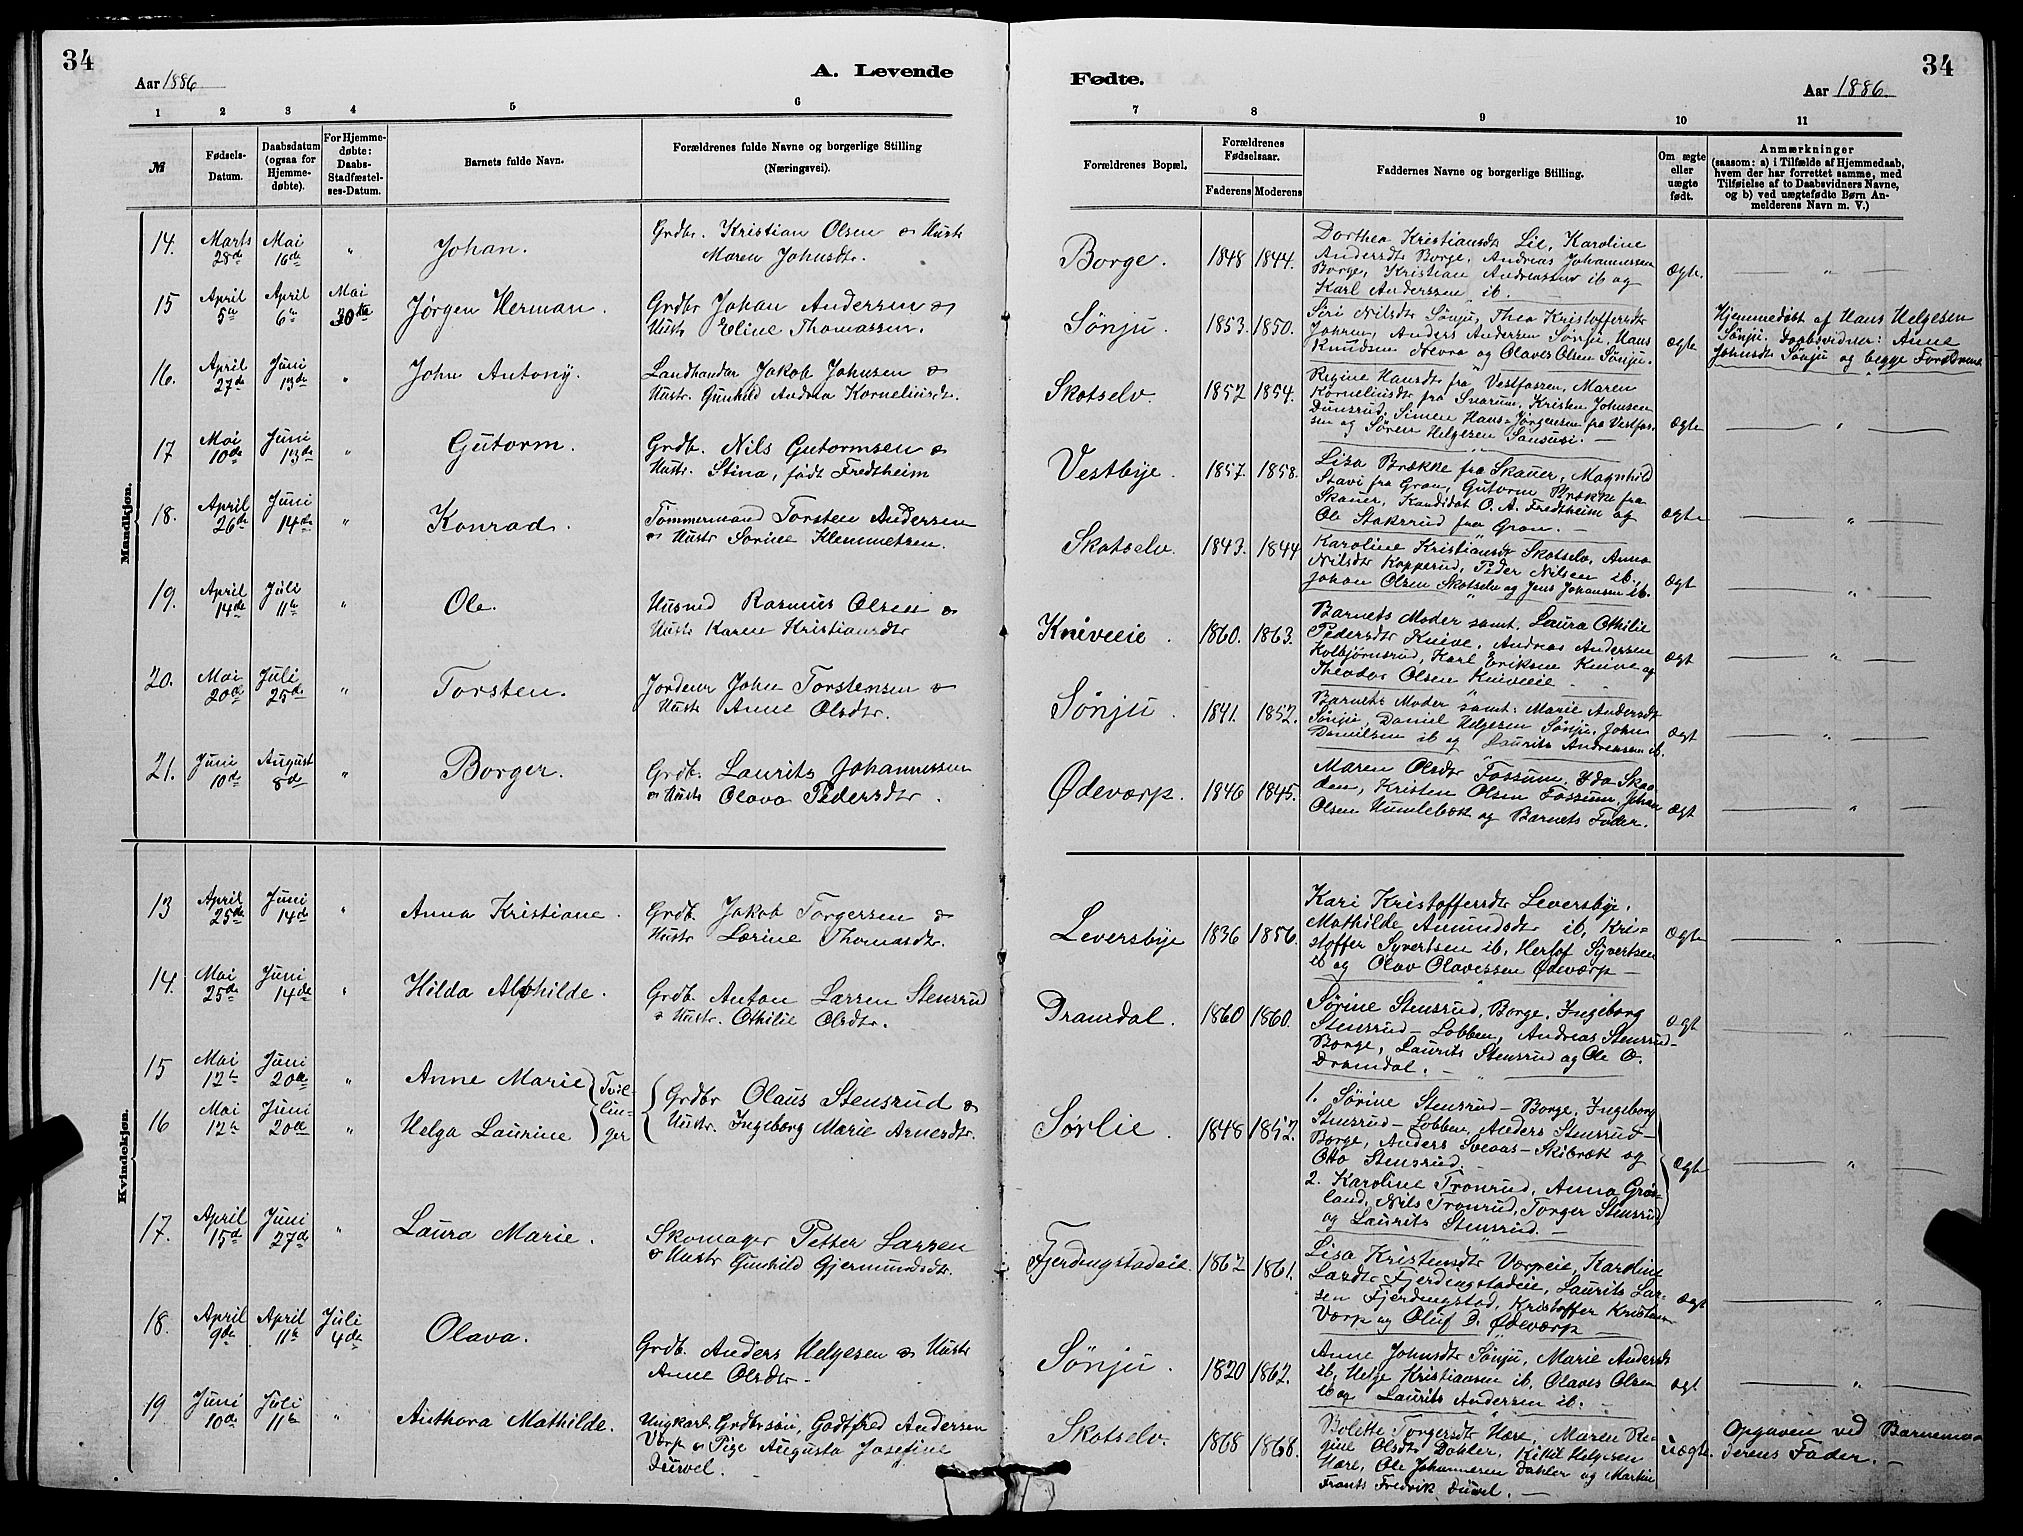 34
Aar 1886
A. Levende
1 2 3 4 5 6
№
Fødsels-
Datum.
Daabsdatum
(ogsaa for
Hjemme-
døbte).
For Hjemme-
døbte:
Daabs-
Stadfæstel-
ses-Datum.
Barnets fulde Navn.
Forældrenes fulde Navne og borgerlige Stilling
(Næringsvei).
Mandkjøn.
14. Marts 28de Mai 16de " Johan.
Grdbr. Kristian Olsen & Hustr
Maren Johnsdtr.
15 April 5te April 6te Mai 30te Jørgen Herman.
Grdbr Johan Andersen &
Hustr Eline Thomassen.
16. April 27de Juni 13de " John Antony.
Landhandar Jakob Johnsen &
Hustr. Gunhild Andrea Korneliusdtr.
17 Mai 10de Juni 13de " Gutorm.
Grdb. Nils Gutormsen &
Hustr. Stina, født Fredtheim
18. April 26de Juni 14de " Konrad.
Tømmermand Torsten Andersen
& Hustr Sorine Klemmetsen.
19. April 14de Juli 11te " Ole.
Husmd Rasmus Olsen &
Hustr Karen Kristiansdtr
20. Mai 20de Juli 25de " Torsten.
John Torstensen &
Hustr Anne Olsdtr.
21. Juni 10de August 8de " Borger.
Grdb. Laurits Johannessen
& Hustr Olava Pedersdtr.
Kvindekjøn.
13 April 25de Juni 14de " Anna Kristiane.
Grdb. Jakob Torgersen &
Hustr Lorine Thomasdtr.
14. Mai 25de Juni 14de " Hilda Alfhilde.
Grdb. Anton Larsen Stensrud
& Hustr. Othilie Olsdtr.
15 Mai 12te Juni 20de " Anne Marie
16 Mai 12te Juni 20de " Helga Laurine
Tvil-
lin-
ger
Grdbr Olaus Stensrud &
Hustr. Ingeborg Marie Arnesdtr.
17. April 15de Juni 27de " Laura Marie.
Skomager Petter Larsen
& Hustr Gunhild Gjermundsdtr.
18. April 9de April 11te Juli 4de Olava.
Grdb. Anders Helgesen & Hustr
Anne Olsdtr.
19 Juni 10de Juli 11te " Anthora Mathilde.
Ungkarl. Grdbrsøn Godtfred Andersen
Vorp & Pige Augusta Josefine
Duvel.
34
Fødte.
Aar 1886.
7 8 9 10 11
Forældrenes Bopæl.
Forældrenes
Fødselsaar.
Faderens Moderens
Faddernes Navne og borgerlige Stilling.
Om ægte
eller
uægte
født.
Anmærkninger
(saasom: a) i Tilfælde af Hjemmedaab,
hvem der har forrettet samme, med
Tilføielse af to Daabsvidners Navne,
og b) ved uægtefødte Børn An-
melderens Navn m. V.)
Borge. 1848 1844.
Dorthea Kristiansdtr Lie, Karoline
Andersdtr Borge, Andreas Johannessen
Borge, Kristian Andreassen ib og
Karl Anderssen ib.
Ægte. "
Sønju. 1853. 1850.
Siri Nilsdtr Sønju, Thea Kristoffersdtr
Anders Andersen Sønju, Hans
Knudsen Nevra og Olaves Olsen Sønju.
Ægte
Hjemmedøbt af Hans Helgesen
Sønju. Daabsvidner: Anne
Johnsdtr Sønju og begge Forældrene
Skotselv. 1852 1854.
Regine Hansdtr fra Vestfossen, Maren
Korneliusdtr fra Snarum, Kristen Johnsen
Dunsrud, Simen Hans-Jørgensen fra Vestfos-
sen og Søren Helgesen Sansusi.
Ægte "
Vestbye. 1857. 1858.
Lisa Brække fra Skauer, Magnhild
Stavi fra Gran, Gutorm Brække fra
Skauer, Kandidat O. A. Fredtheim og
Ole Stakerud fra Gran.
Ægte "
Skotselv. 1843. 1844
Karoline Kristiansdtr Skotselv, Anna
Nilsdtr Kopperud, Peder Nilsen ib.,
Johan Olsen Skotselv og Jens Johansen ib.
Ægt "
Kniveeie. 1860. 1863.
Barnets Moder samt. Laura Othilie
Pedersdtr Knive, Andreas Andersen
Kolbjørnsrud, Karl Eriksen Knive og
Theodor Olsen Kniveeie
Ægt "
Sønju. 1841. 1852.
Barnets Moder samt: Marie Andersdtr
Sønju, Daniel Helgesen Sønju, John
Danielsen ib og Laurits Andreasen ib.
Ægt "
Ødeværp. 1846 1845.
Maren Olsdtr Fossum, Ida Ska-
den, Kristen Olsen Fossum, Johan
Olsen Humlebæk og Barnets Fader.
Ægt "
Leversbye 1836 1856.
Kari Kristoffersdtr Leversbye,
Mathilde Amundsdtr ib, Kri-
stoffer Syvertsen ib, Herlof Syvertsen
ib og Olav Olavessen Ødeværp
Ægte "
Dramdal. 1860 1860.
Sørine Stensrud, Borge, Ingeborg
Stensrud-Lobben, Andreas Stensrud-
Borge, Laurits Stensrud og Ole O.
Dramdal.
Ægt "
Sørlie. 1848 1852.
1. Sørine Stensrud-Borge, Ingeborg
Stensrud-Lobben, Anders Stensrud-
Borge, Anders Sveaas-Skibræk og
Otto Stensrud.
2. Karoline Tronrud, Anna Grøs-
land, Nils Tronrud, Torger Stensrud
og Laurits Stensrud.
Ægte "
Fjerdingstadeie 1862 1861.
Lisa Kristensdtr Vorpeie, Karoline
Larsdtr Fjerdingstadeie, Laurits Lar-
sen Fjerdingstad, Kristoffer Kristensen
Vorp og Oluf P. Ødeværp
Ægt "
Sønju. 1820 1862.
Anne Johnsdtr Sønju, Marie Andersdtr
ib, Helge Kristiansen ib, Olaves Olsen
ib og Laurits Andersen ib.
Ægt "
Skotselv. 1868 1868.
Bolette Torgersdtr Hære, Maren Re-
gine Olsdtr Dahler, Kittil Helgesen
Hære, Ole Johannesen Dahler og Martin
Frants Fredrik Duvel.
Uægte.
Opgaven ved Barnemo-
derens Fader.